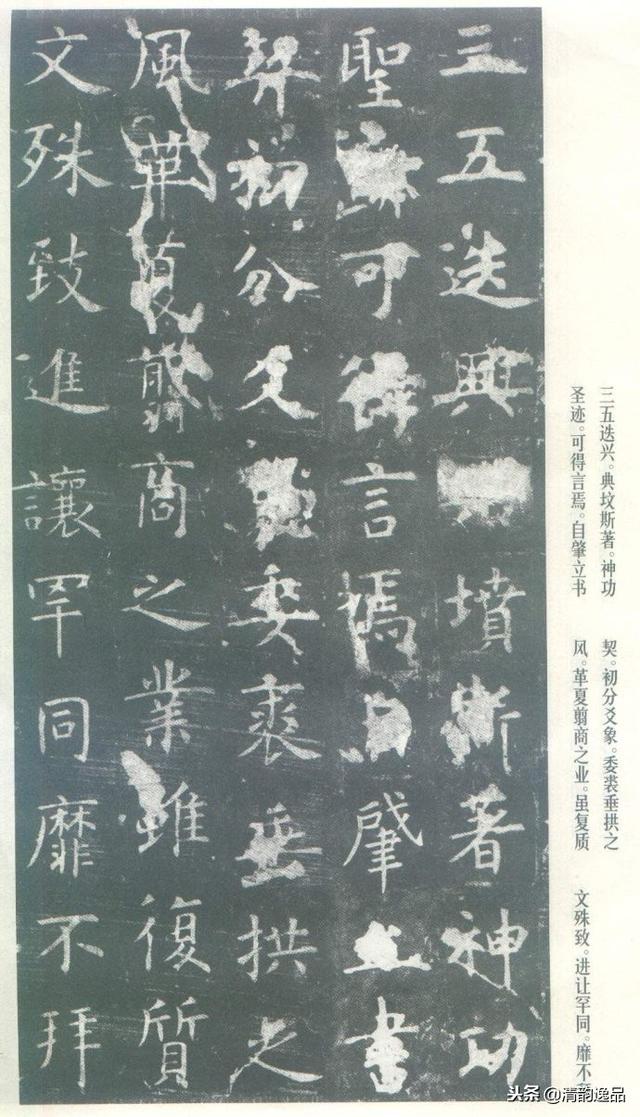 三五迭興典墳斯著神功
聖跡可得言焉自肇立書
契初分爻象委裘垂拱之
風革夏翦商之業雖復質
文殊致進讓罕同靡不拜
三五迭兴。典坟斯著。神功
圣迹。可得言焉。自肇立书
契。初分爻象。委裘垂拱之
风。革夏翦商之业。虽复质
文殊致。进让罕同。靡不
头条 @清韵逸品